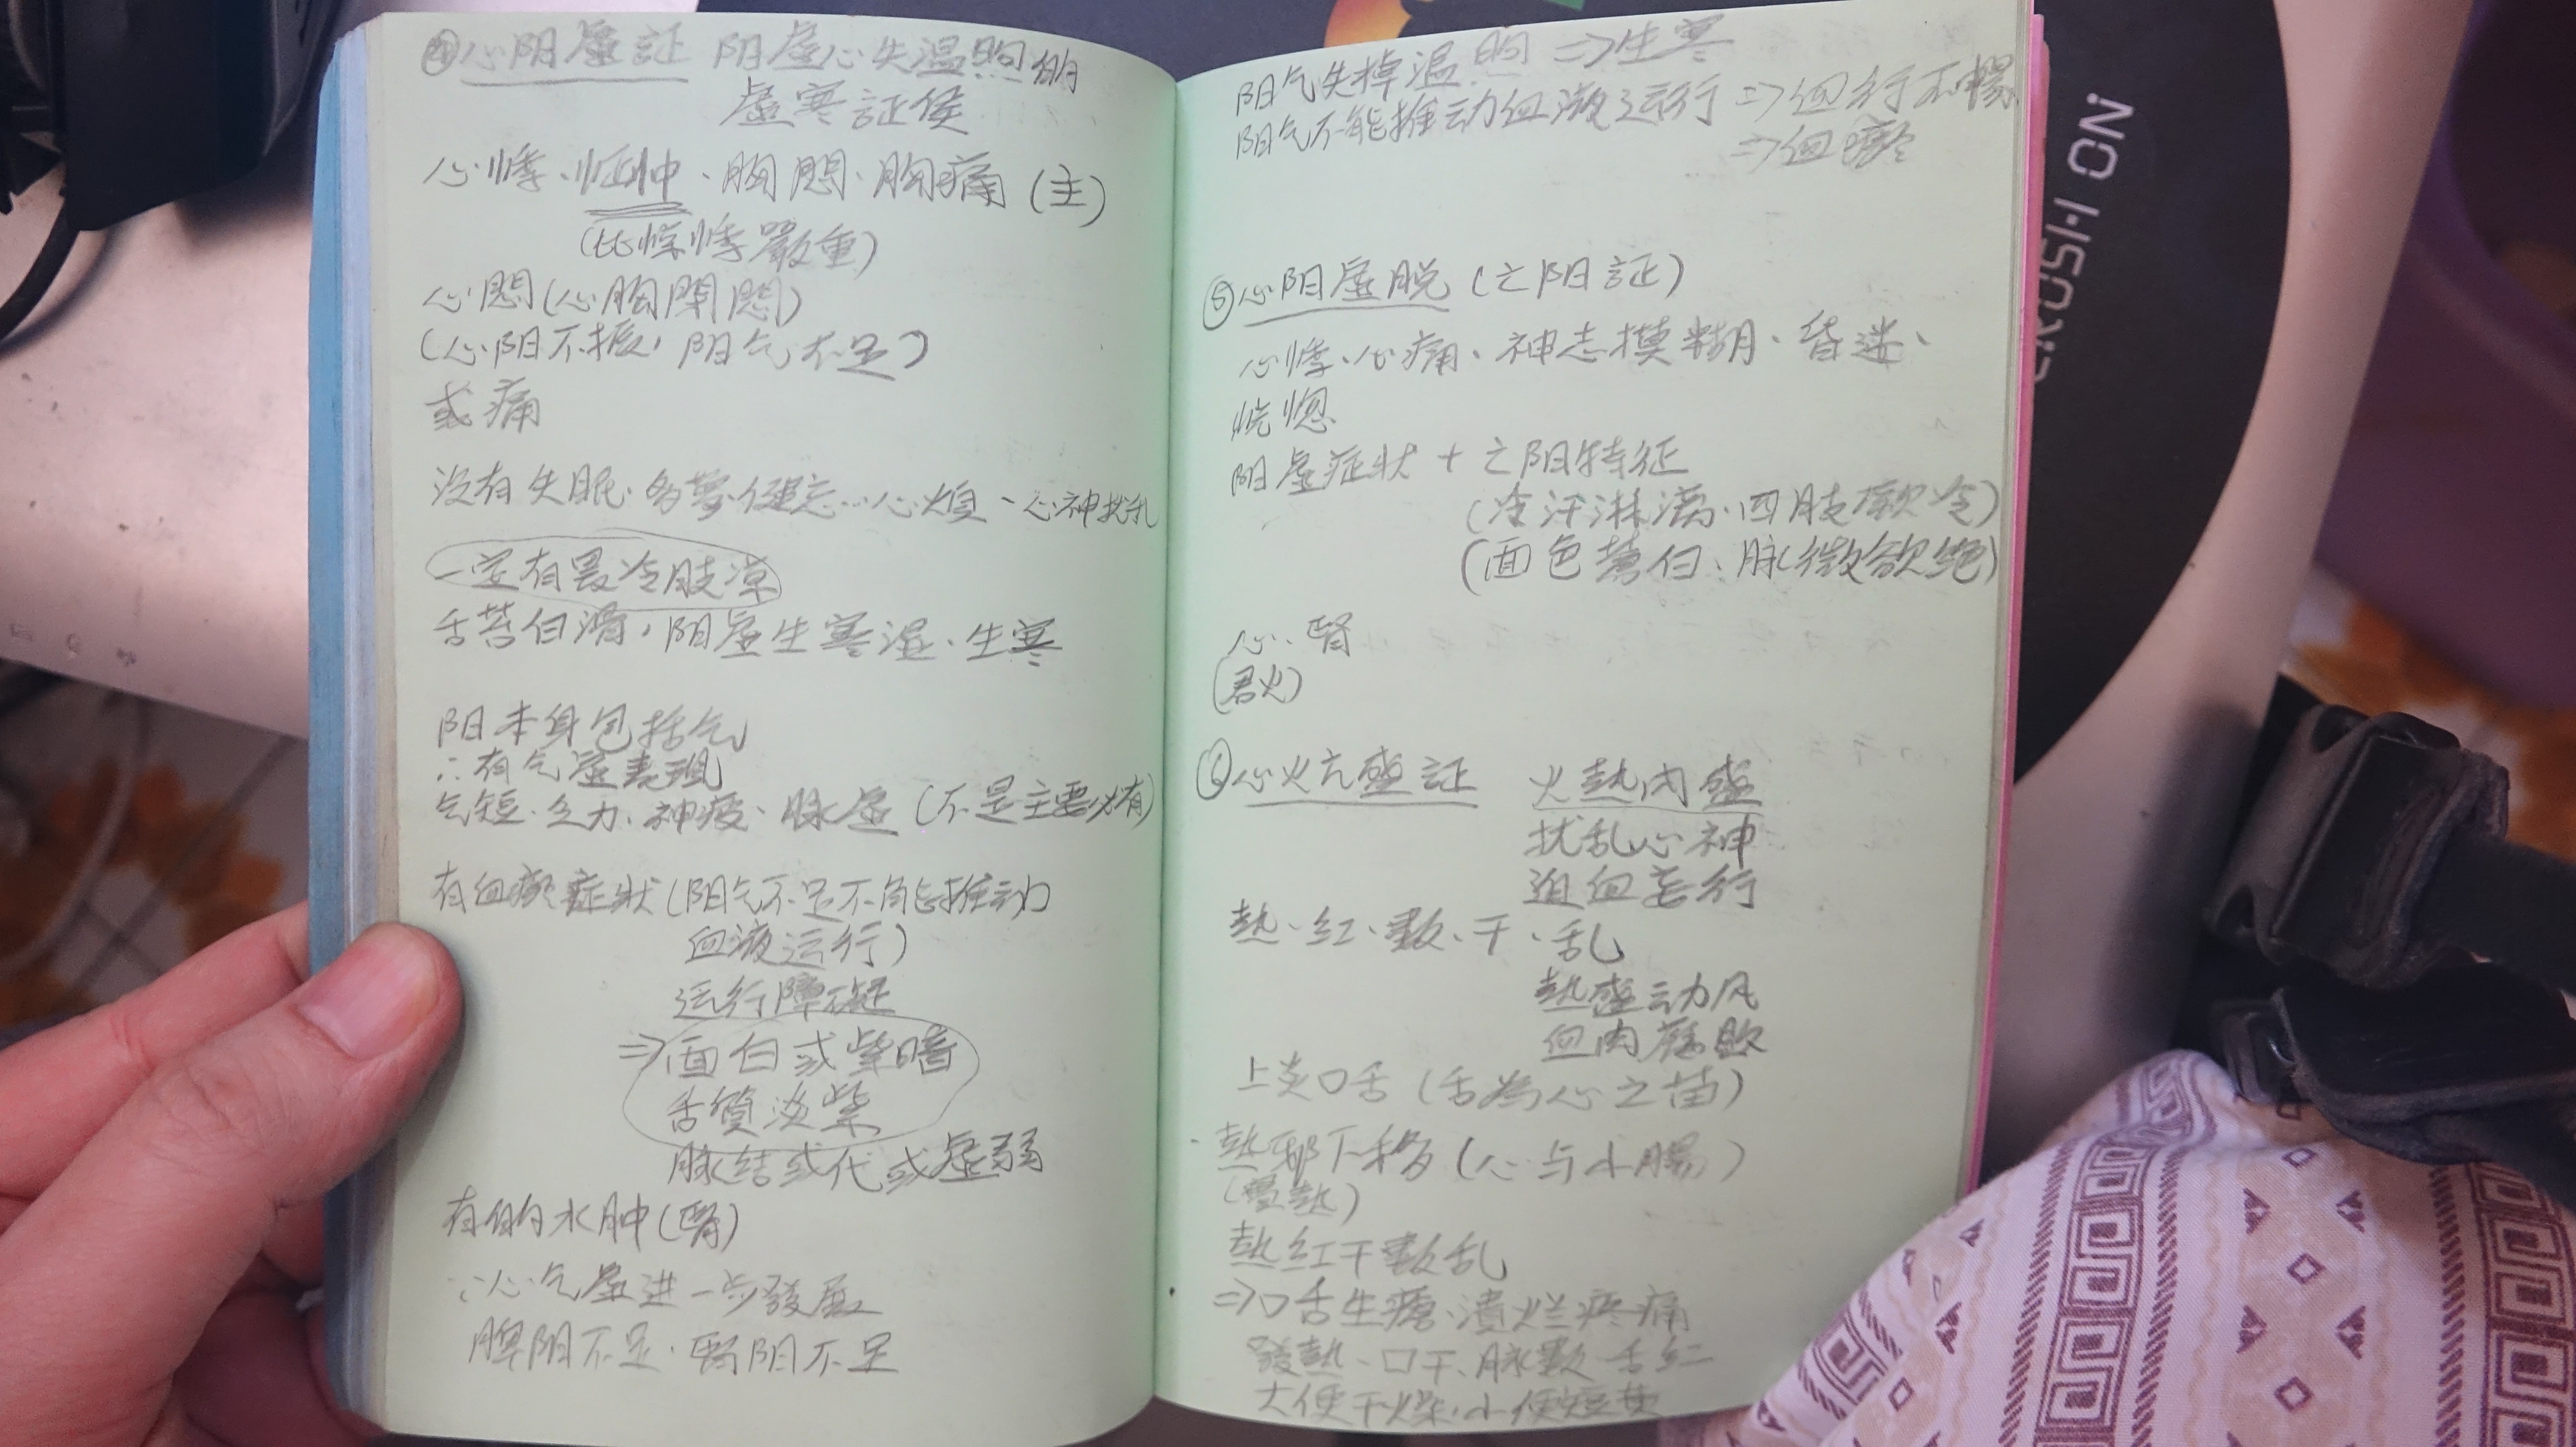 ④心阳虛証 阳虛心失温煦的
虛寒証侯
心悸、怔忡、胸悶、胸痛(主)
(比惊悸嚴重)
心悶(心胸閉悶)
(心阳不振,阳气不足)
或痛
沒有失眠、多夢、健忘…心煩、心神扰乱
一定有畏冷肢凉
舌苔白滑,阳虛生寒湿、生寒
阳本身包括气
∴有气虛表現
气短、乏力、神疲、脉虛(不是主要必有)
有血瘀症狀(阳气不足不能推动
血液运行)
运行障碍
⇒面白或紫暗
舌質淡紫
脉结或代或虛弱
有的水肿(腎)
∵心气虛進一步發展
脾阳不足、腎阳不足
阳气失掉温煦⇒生寒
阳气不能推动血液运行⇒血行不暢
⇒血瘀
⑤心阳虛脱(亡阳証)
心悸、心痛、神志模糊、昏迷、
恍惚
阳虛症狀+亡阳特征
(冷汗淋漓、四肢厥冷)
(面色蒼白、脉微欲绝)
心、腎
(君火)
⑥心火亢盛証 火熱内盛
扰乱心神
迫血妄行
熱、红、數、干、乱
熱盛动风
血肉腐敗
上炎口舌(舌為心之苗)
熱邪下移(心与小腸)
熱红干數乱
⇒口舌生瘡、潰烂疼痛
發熱、口干、脉數 舌红
大便干燥、小便短黄
ON